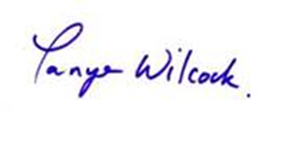 Tanya Wilcock.